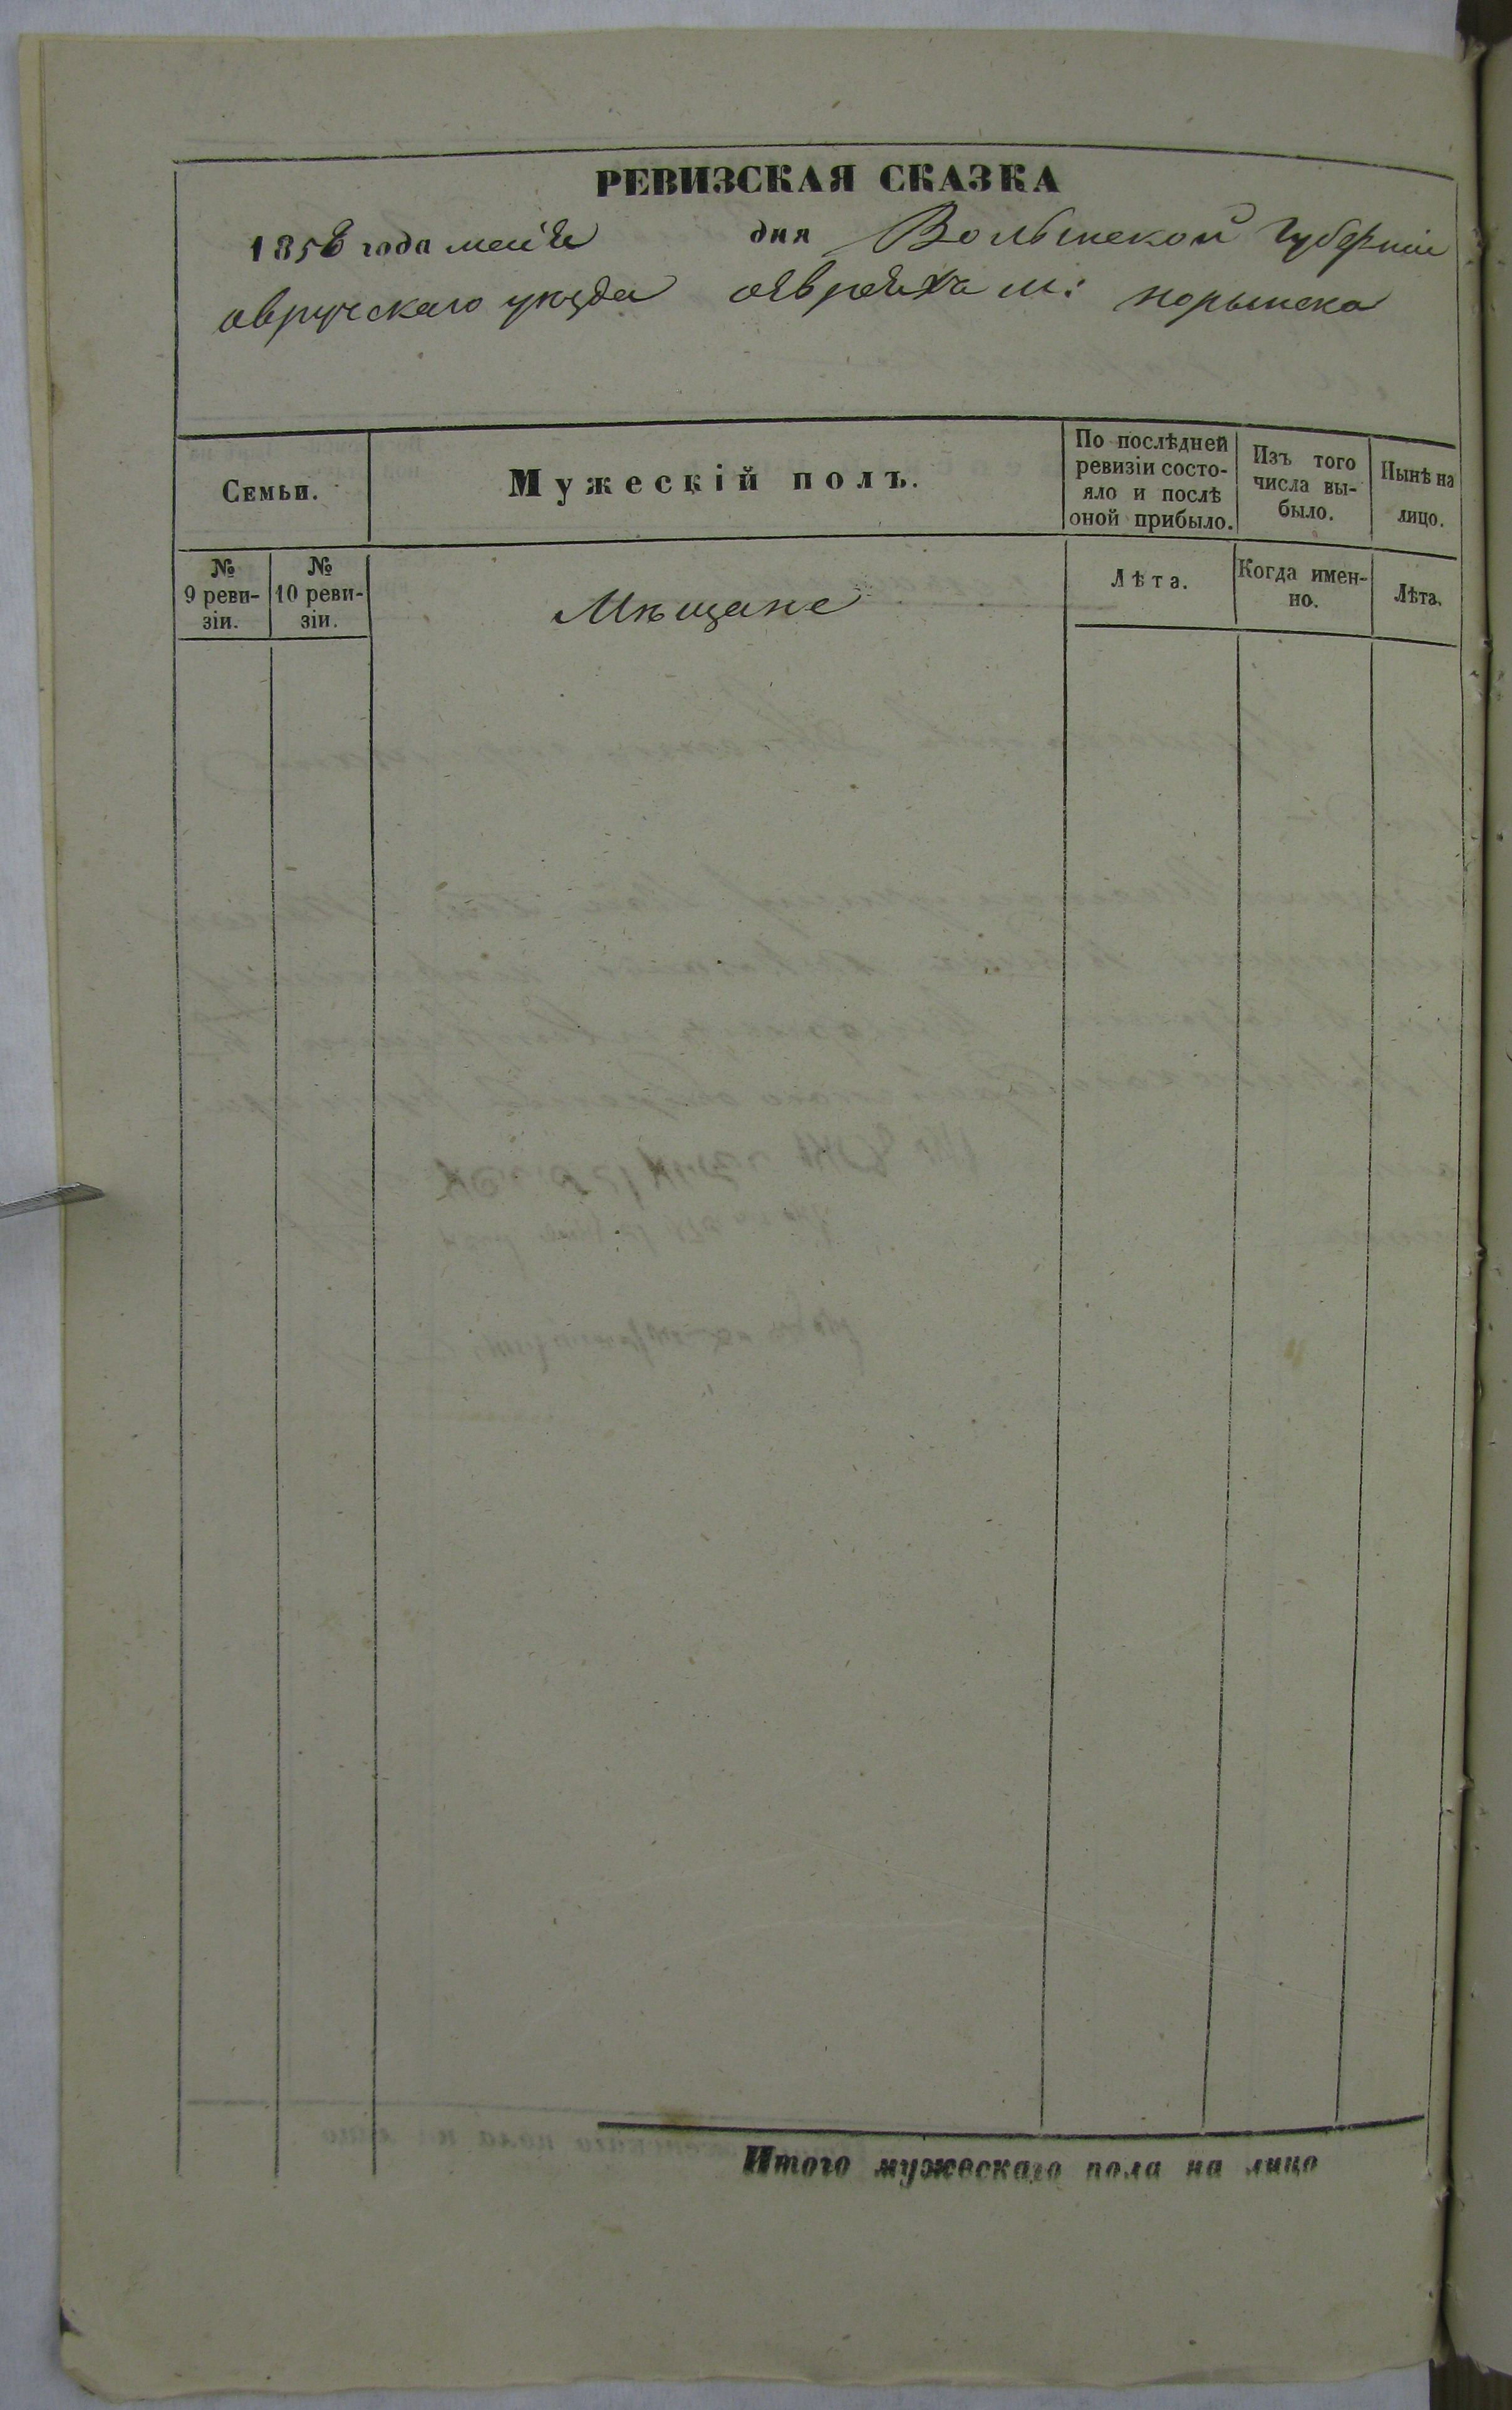 РЕВИЗСКАЯ СКАЗКА
1858 года маія дня Волынской Губерніи
овручскаго уѣзда о Евреяхъ м: норынска
Семьи.
Мужескій полъ.
По послѣдней
ревизіи состо-
яло и послѣ
оной прибыло.
Изъ того
числа вы-
было.
Нынѣ на
лицо.
№
9 реви-
зіи.
№
10 реви-
зіи.
Мѣщане
Лѣта.
Когда имен-
но.
Лѣта.
Итого мужескаго пола на лицо